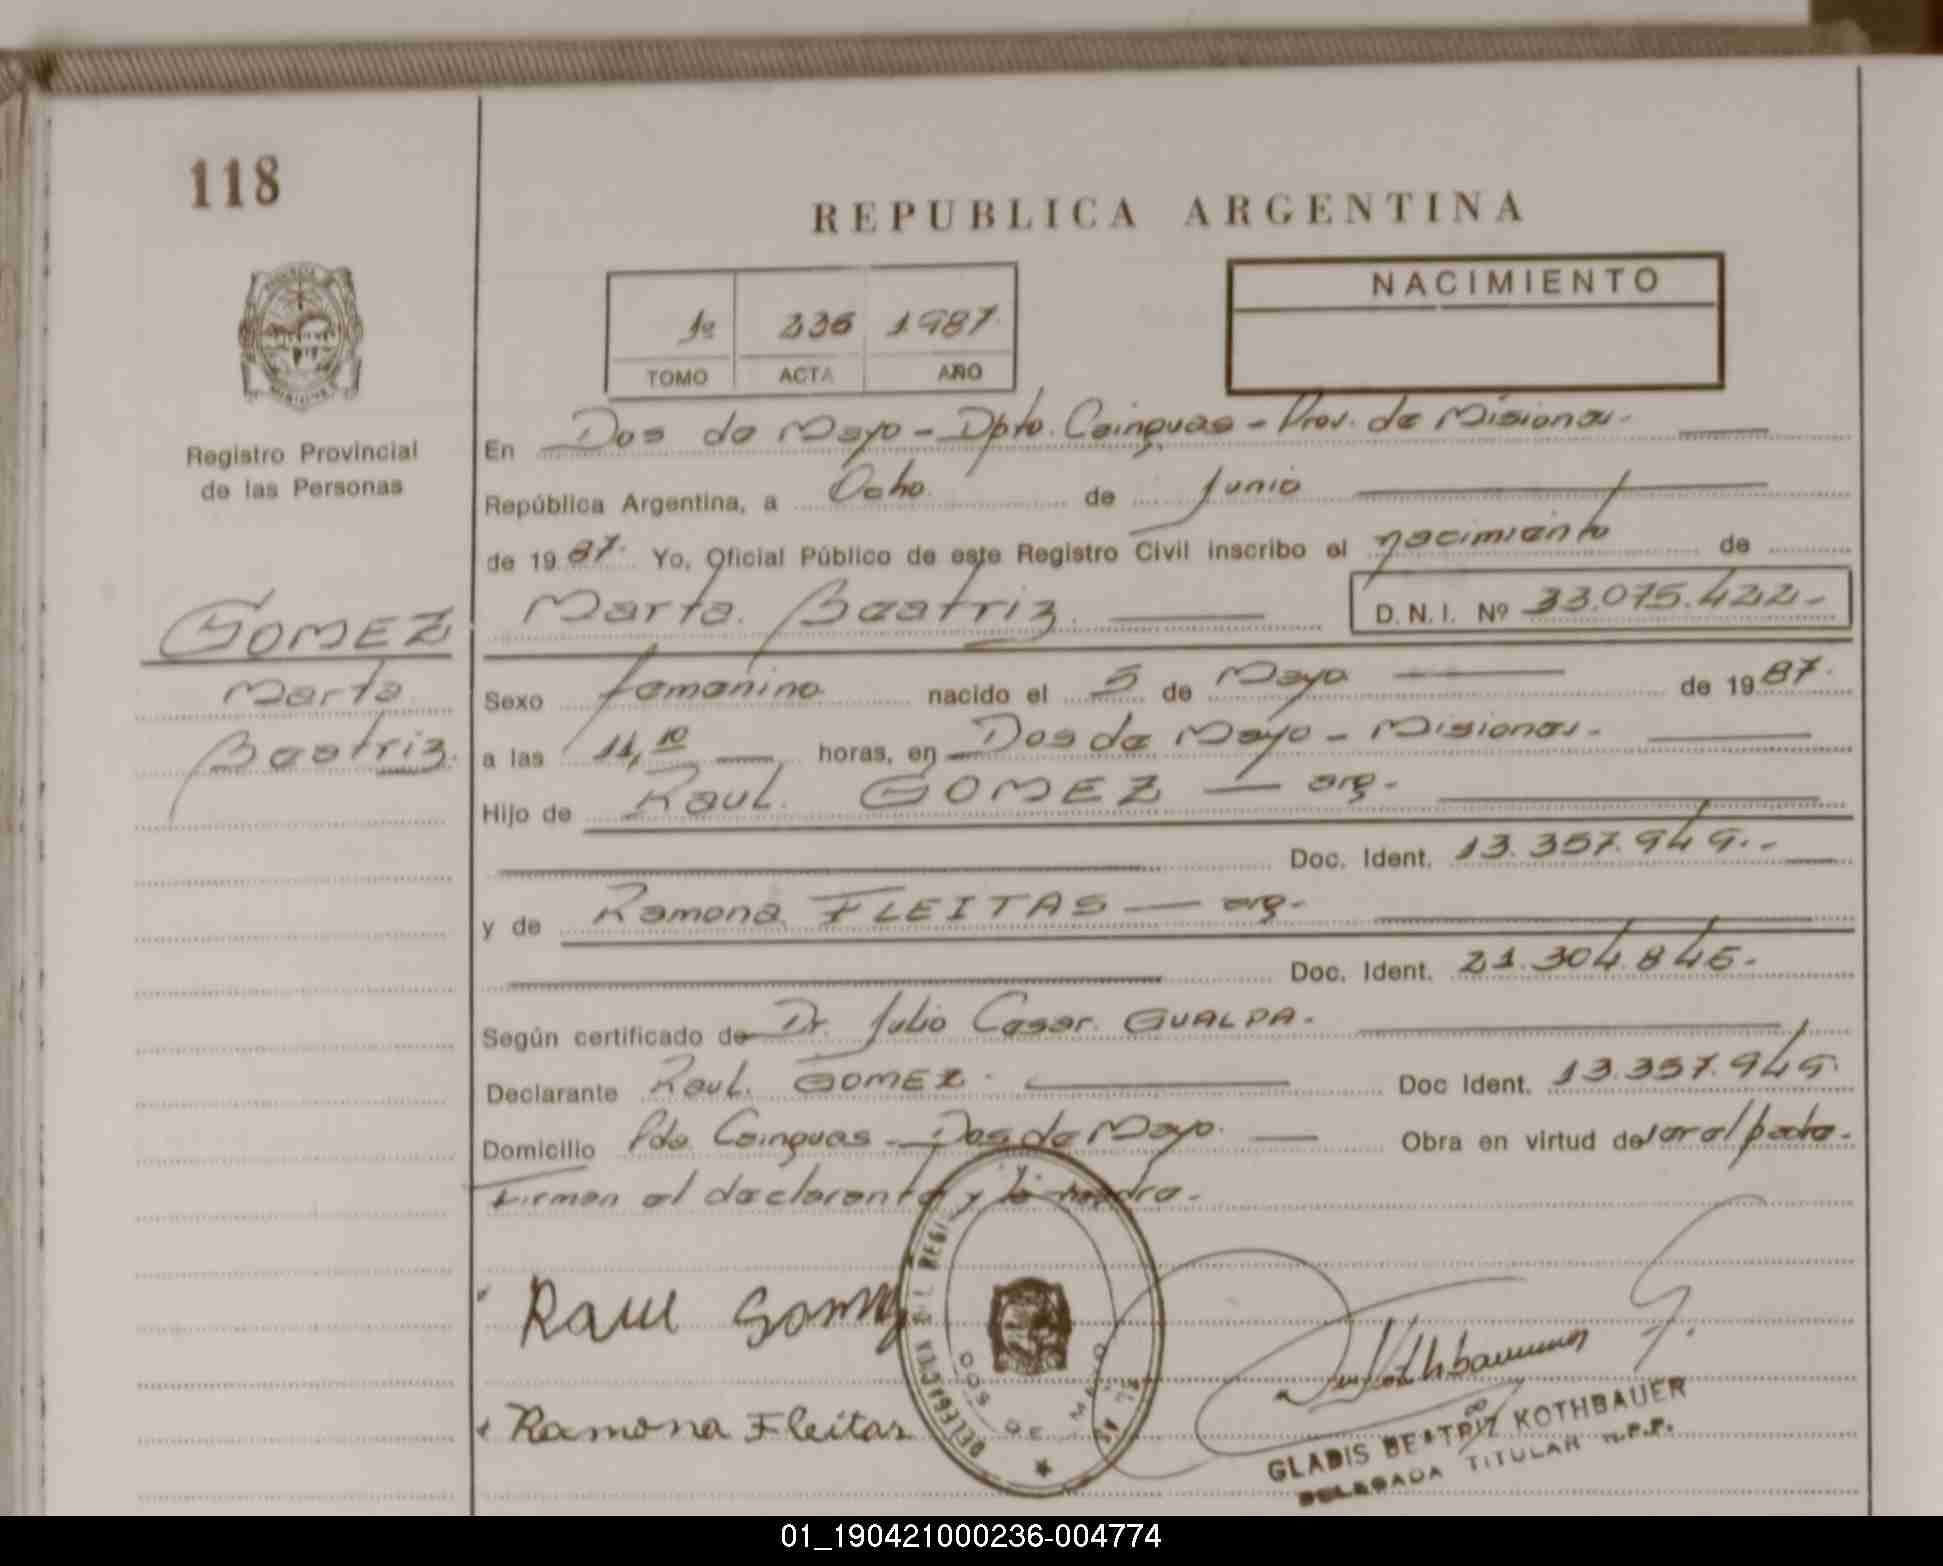 118
REPUBLICA ARGENTINA
NACIMIENTO
1º 236 1987
TOMO ACTA AÑO
Registro Provincial
de las Personas
En Dos de Mayo - Dpto. Cainguas - Prov. de Misiones.
República Argentina, a Ocho de Junio
de 1987. Yo, Oficial Público de este Registro Civil inscribo el nacimiento de
Marta Beatriz. D.N.I. Nº 33.075.422-
GOMEZ
Marta
Beatriz.
Sexo femenino nacido el 5 de Mayo de 1987.
a las 11,10 horas, en Dos de Mayo - Misiones.
Hijo de Raul. GOMEZ — arg.
Doc. Ident. 13.357.949.-
y de Ramona FLEITAS — arg.
Doc. Ident. 21.304.845.
Según certificado de Dr. Julio Cesar. GUALPA.
Declarante Raul. GOMEZ. Doc Ident. 13.357.949.
Domicilio Pdo Cainguas - Dos de Mayo. Obra en virtud de ser el padre.
Firman el declarante y la madre.
Raul Gomez
Ramona Fleitas
DOS DE MAYO
GLADIS BEATRIZ KOTHBAUER
DELEGADA TITULAR R.P.P.
01_190421000236-004774